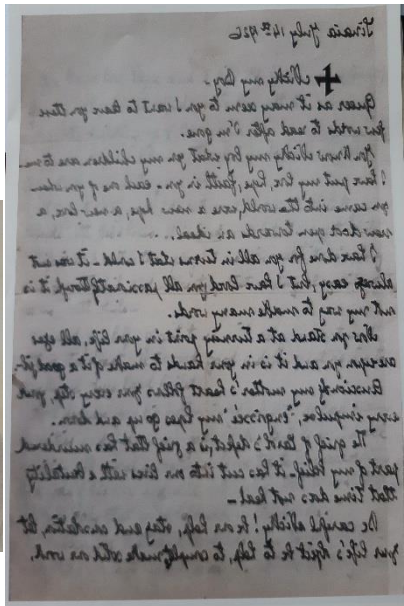 Sinaia July 14th 1926
Nicky my boy.
Queer as it may seem to you I want to leave you these
few words to read after I'm gone.
You know Nicky my boy what you my children are to me
I have put my love, hope, faith in you. - each one of you when
you came into the world, were a new hope, a new love, a
new door open towards an ideal.
I have done for you all in turns what I could - it was not
always easy, but I have loved you all passionately though it is
not my way to make many words.
Now you stand at a turning point in your life, all eyes
are upon you and it is in your hands to make of it a good
Anxiously my mother's heart follows your every step, your
every impulse, my hopes go up and down.
The grief of Carol's defeat is a grief that has undermined
part of my belief - it has cut into our lives with a brutality
that time does not heal -
Be careful Nicky! be our help, stay and consolation, let
your life's object be to help, to complete, make solid our work.